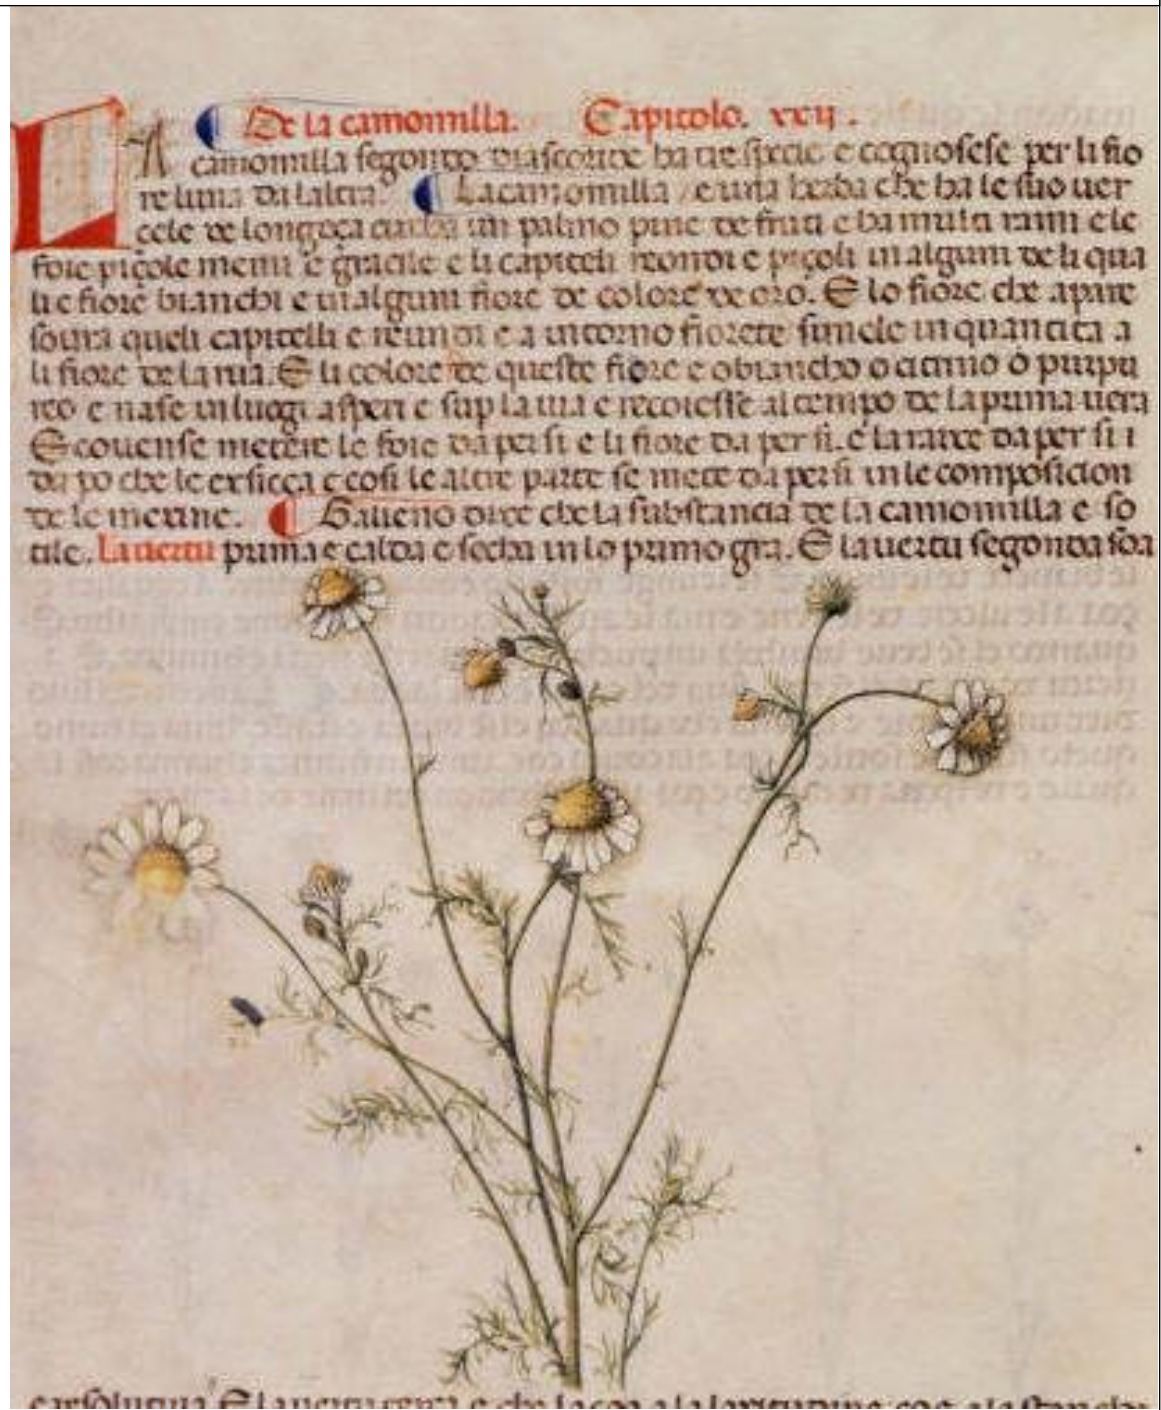 De la camomilla. Capitolo. xxij.
LA camomilla segondo diascoride ha tre specie e cognosese per li fio
re luna da laltra. La camomilla / e una herba che ha le suo uer
cele de longeça circha un palmo pine de fruti e ha multi rami e le
foie piçole menu e gracile e li capiteli reondi e piçoli in alguni de li qua
li e fiore bianchi e in alguni fiore de colore de oro. E lo fiore che apare
soura queli capitelli e reundi e a intorno fiorete simele in quantita a
li fiore de la rua. E li colore de queste fiore e o biancho o citrino o purpu
reo e nase in luogi asperi e sup la uia e recoiesse al tempo de la prima uera
E couense metere le foie da per si e li fiore da per si. e la raixe da per si i
da po che le exsicca e cosi le altre parte se mete da per si in le composicion
de le mexine. Galieno dixe che la substancia de la camomilla e so
tile. La uertu prima e calda e secha in lo primo gra. E la uertu segonda soa
E la uertu e che la